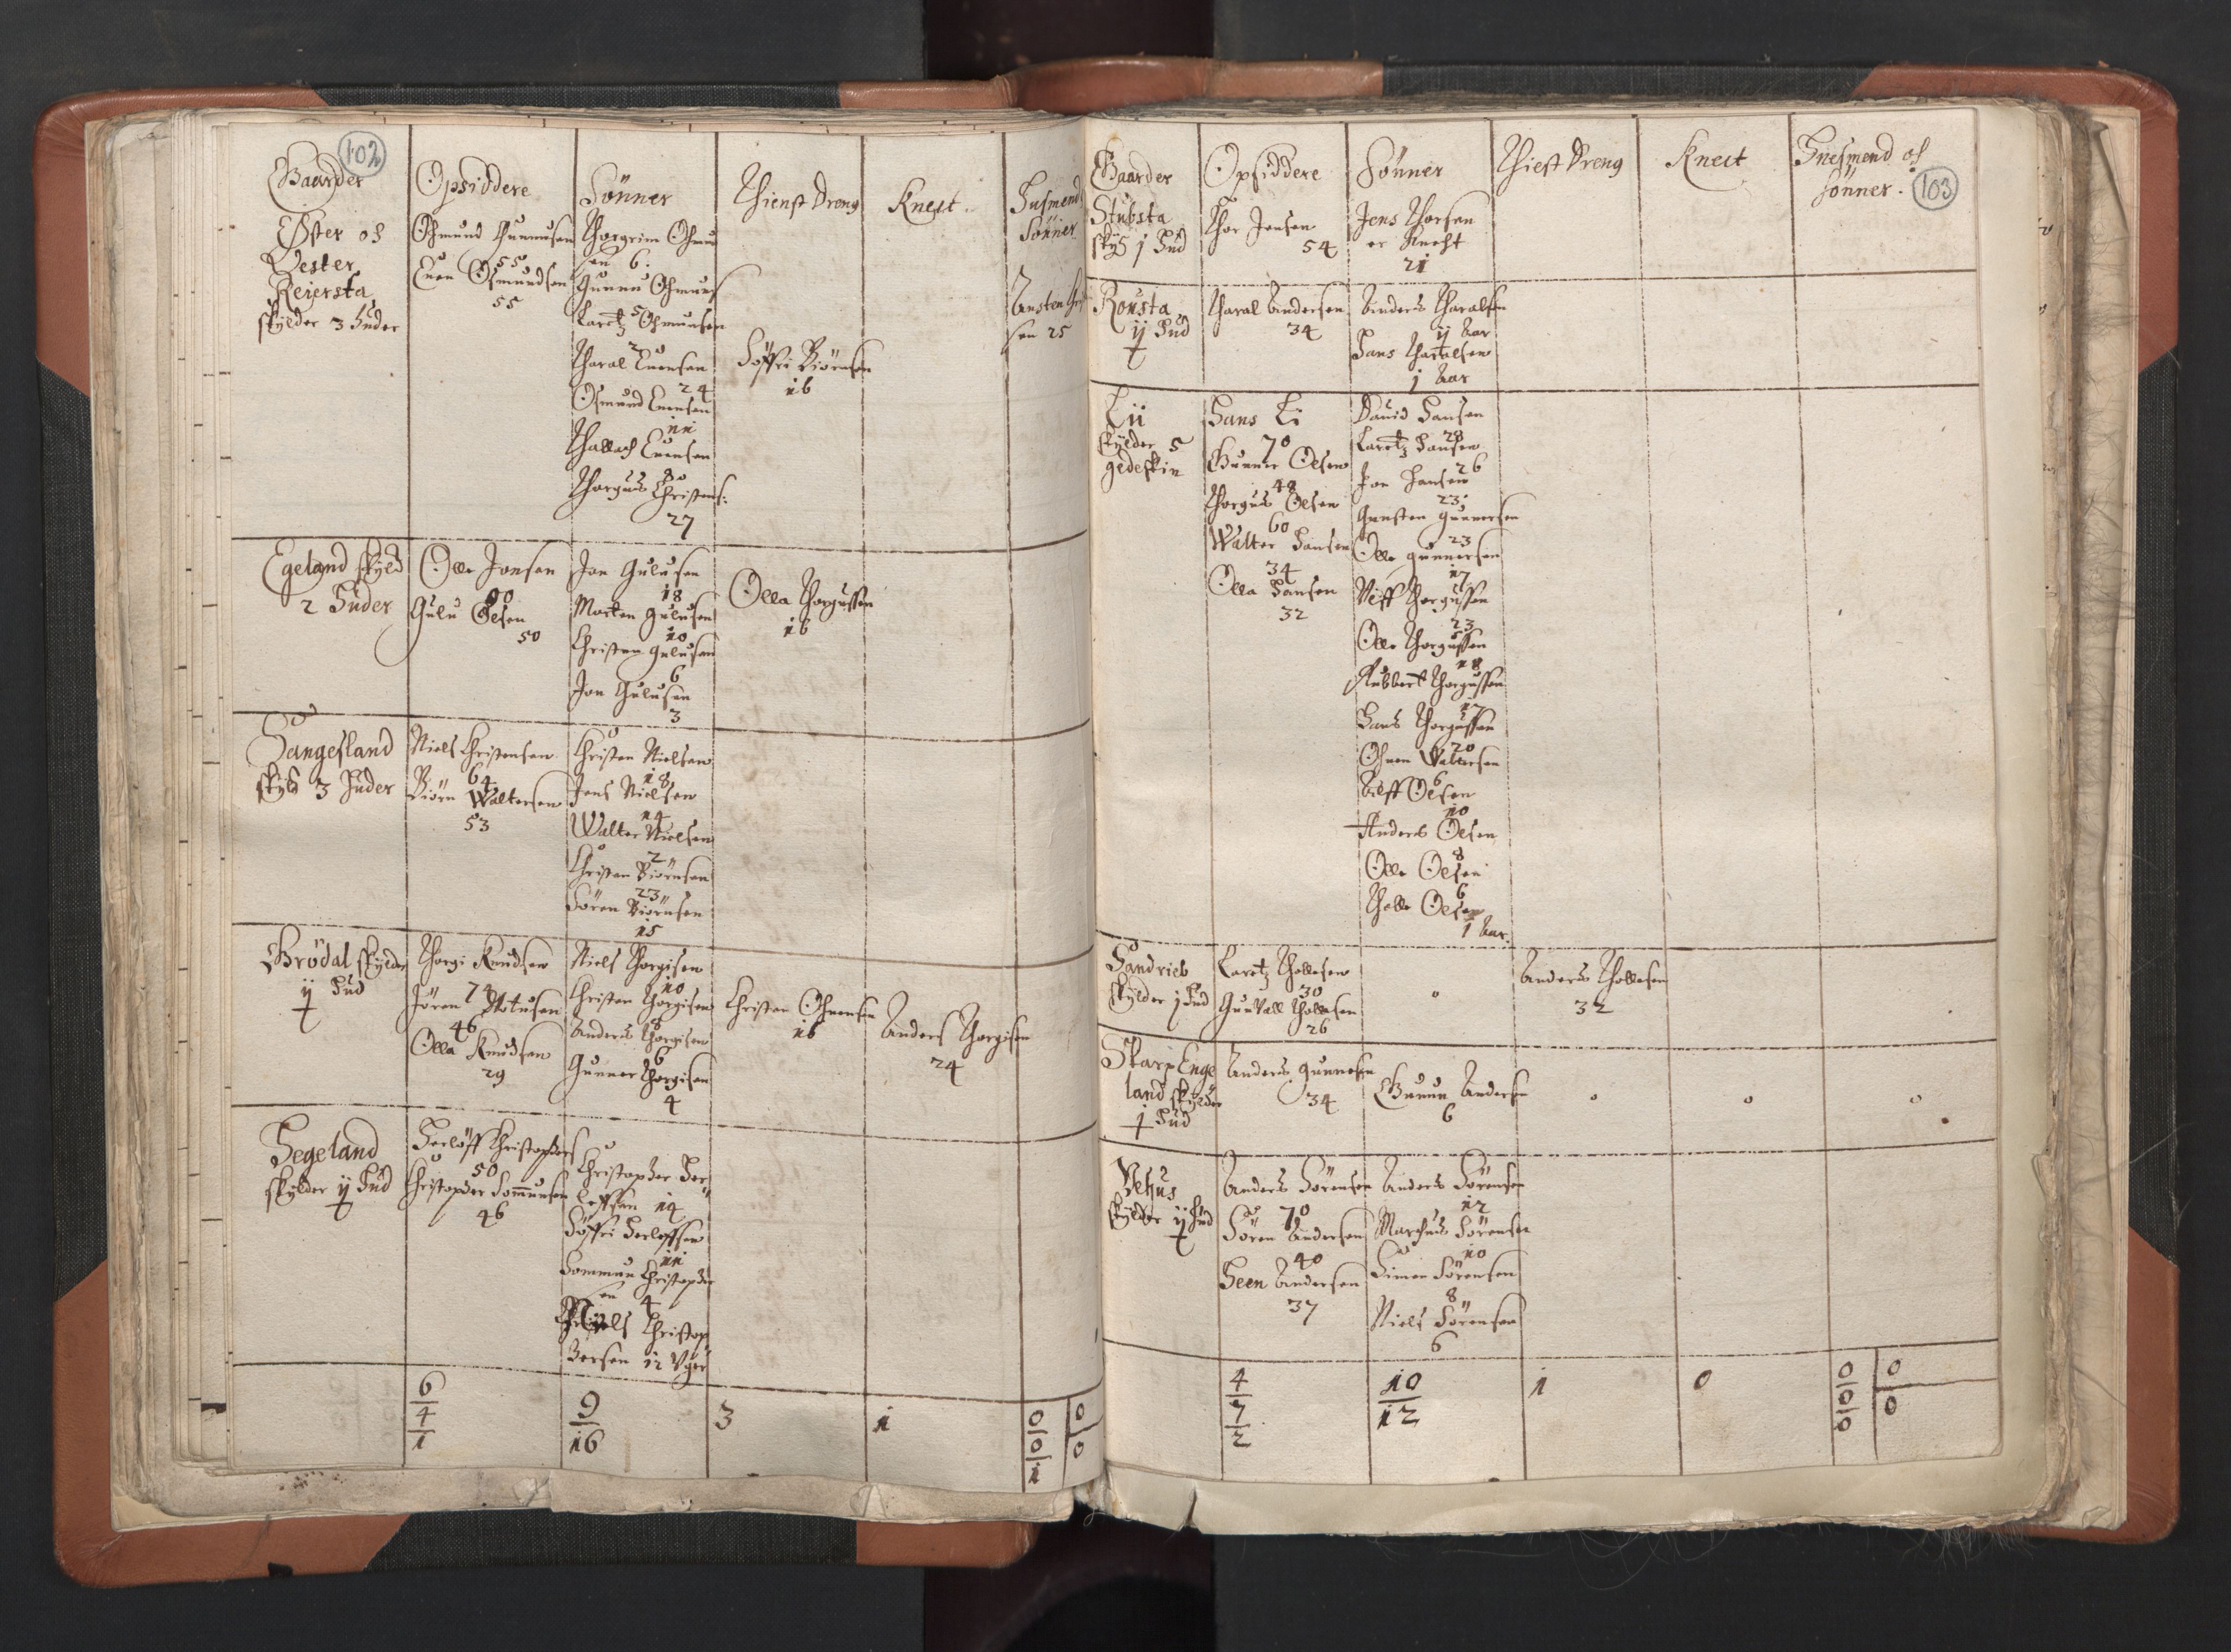 102
Gaarder
Opsiddere
Sönner
Thienst Dreng
Knect.
Husmend
Sönner
Öster og
Vester
Reiersta
skylder 3 Huder
Ohmund Gunnusen
55
Euen Osmundsen
55
Thorgrim Ohmun
sen 6.
Gunnu Ohmuns
5
Laretz Ohmunsen
2
Tharal Euensen
24
Osmund Euensen
11
Thallach Euensen
80
Thorguus Christens:
27
Söffri Biörnsen
16
Ansten
sen 25
Egeland skyld
2 Huder
Olle Jonsen
90
Gulu Olsen
50
Jon Gulusen
18
Morten Gulusen
10
Christen Gulusen
6
Jon Gulusen
3
Olla Thorgussen
16
Hangesland
skyld 3 Huder
Niels Christensen
64
Biörn Waltersen
53
Christen Nielsen
18
Jens Nielsen
14
Walter Nielsen
2
Christen Biörnsen
23
Sören Biörnsen
15
Grödal skylder
ij Hud
Thorgi Knudsen
74
Jören Motusen
46
Olla Knudsen
29
Niels Thorgisen
10
Christen Thorgisen
8
Anders Thorgisen
6
Gunner Thorgisen
4
Christen Ohmensen
16
Anders Thorgisen
24
Hegeland
skylder ij Hud
Herlöff Christophers
50
Christopher Sommunsen
46
Christopher Her
löffsen 14
Söffri Herloffsen
11
Sommun Christopher
sen 4
Niels Christop
hersen 12 Vger
6
4
1
9
16
3
1
0
0
1
0
0
103
Gaarder
Opsiddere
Sönner
Thiest Dreng
Knect
Husmend og
sönner.
Stubsta
skyld j Hud
Thor Jensen
54
Jens Thorsen
er Knecht
21
Rousta
ij Hud
Tharal Andersen
34
Anders Tharalsen
ij Aar
Hans Tharalsen
1 Aar
Lii
skylder 5
gedeskin
Hans Li
70
Gunner Olsen
48
Thorgus Olsen
60
Walter Hansen
34
Olla Hansen
32
Dauid Hansen
28
Laretz Hansen
26
Jon Hansen
23
Gunsten Gunnersen
23
Olle gunnersen
17
Veff Thorgussen
23
Olle Thorgussen
18
Rubbert Thorgussen
17
Hans Thorgussen
20
Ohuen Waltersen
6
Alff Olsen
10
Anders Olsen
8
Olle Olsen
6
Tholle Olsen
1 Aar.
Sandrieb
skylder j Hud
Laretz Thollesen
30
Gunvall Thollesen
26
0
Anders Thollesen
32
Skarp Enge
land skylder
j Hud
Anders gunnesen
34
Gunnu Andersen
6
0
0
0
Vehus
skylder ij Hud
Anders Sörensen
70
Sören Andersen
40
Steen Andersen
37
Anders Sörensen
12
Marchus Sörensen
10
Simen Sörensen
8
Niels Sörensen
6
4
7
2
10
12
1
0
0
0
0
0
0